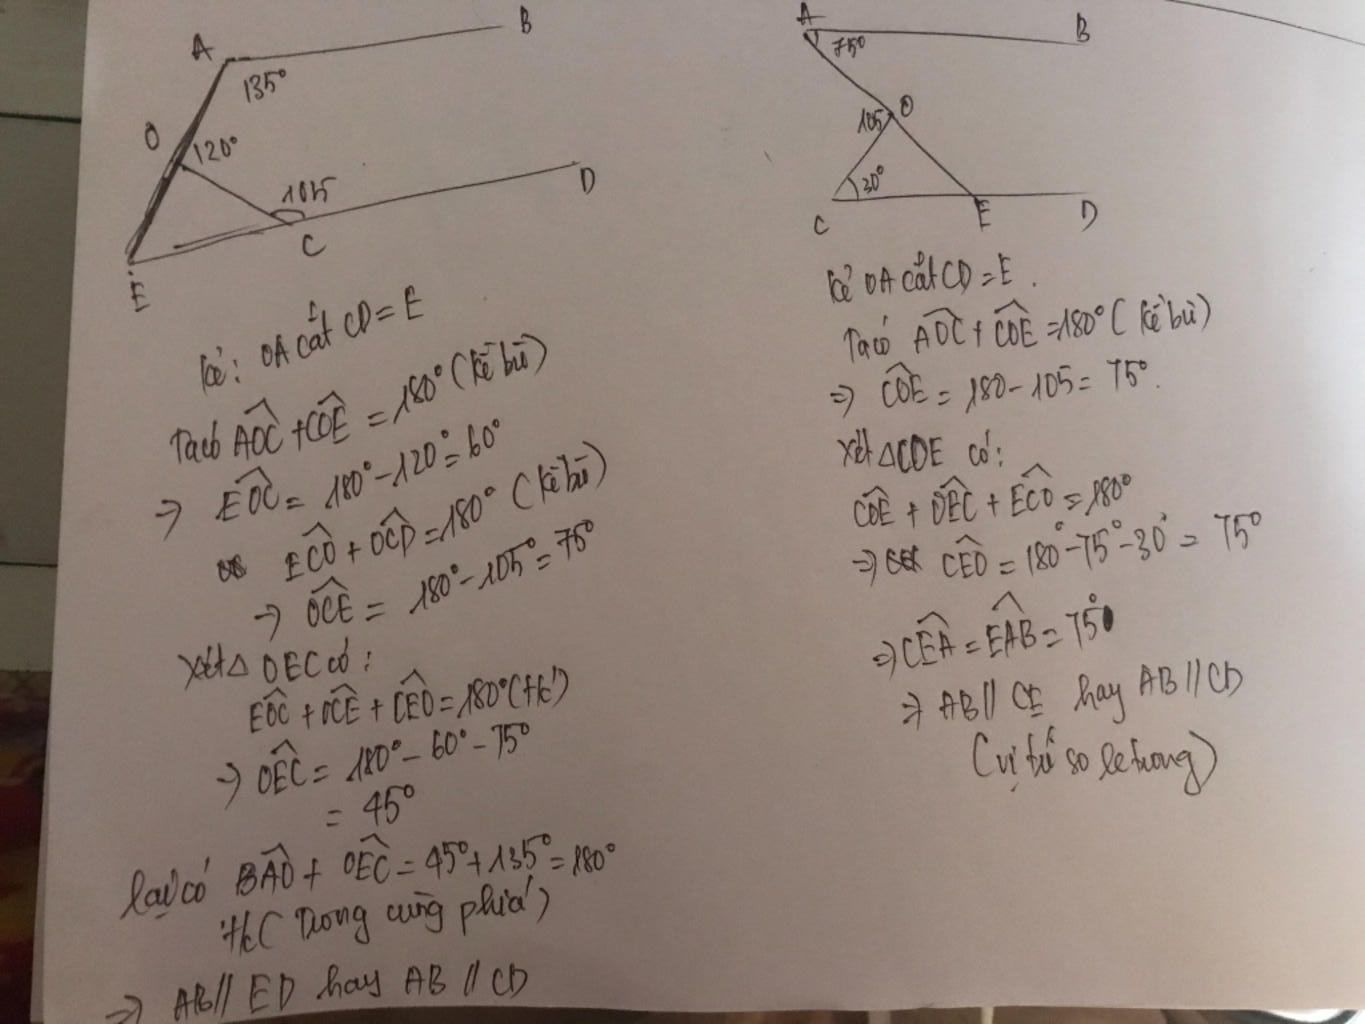 A
B
135°
O
120°
105
D
C
E
Kẻ: OA cắt CD = E
Ta có AOC + COE = 180° (kề bù)
=> EOC = 180° - 120° = 60°
ECO + OCD = 180° (kề bù)
=> OCE = 180° - 105° = 75°
Xét △ OEC có:
EOC + OCE + CEO = 180° (t/c)
=> OEC = 180° - 60° - 75°
= 45°
lại có BAO + OEC = 45° + 135° = 180°
t/c (Trong cùng phía)
=> AB // ED hay AB // CD
A
B
75°
O
105
30°
C
E
D
Kẻ OA cắt CD = E.
Ta có AOC + COE = 180° (kề bù)
=> COE = 180 - 105 = 75°.
Xét △COE có:
COE + OEC + ECO = 180°
=> CEO = 180° - 75° - 30° = 75°
=> CEA = EAB = 75°
=> AB // CE hay AB // CD
(vị trí so le trong)